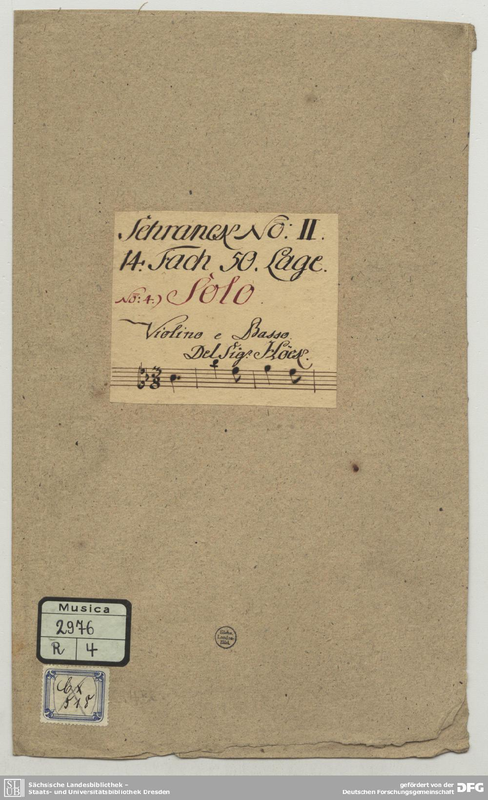 Schranck No: II.
14. Fach 50. Lage.
No: 4.) Solo.
Violino e Basso.
Del Sigr Höck.
Musica
2976
R 4
Sächs.
Landes-
Bibl.
Sächsische Landesbibliothek –
Staats- und Universitätsbibliothek Dresden
gefördert von der
Deutschen Forschungsgemeinschaft DFG